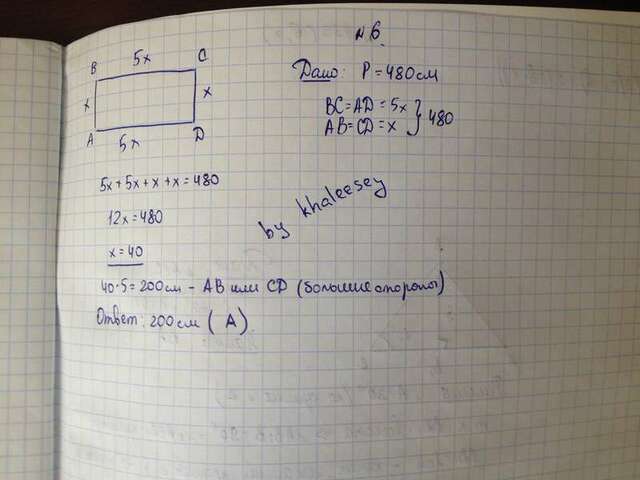 №6.
Дано: P = 480 см
BC = AD = 5x
AB = CD = x } 480
B 5x C
x x
A 5x D
5x + 5x + x + x = 480
12x = 480
x = 40
by khaleesey
40·5 = 200 см - AB или CD (большие стороны)
Ответ: 200 см (A).